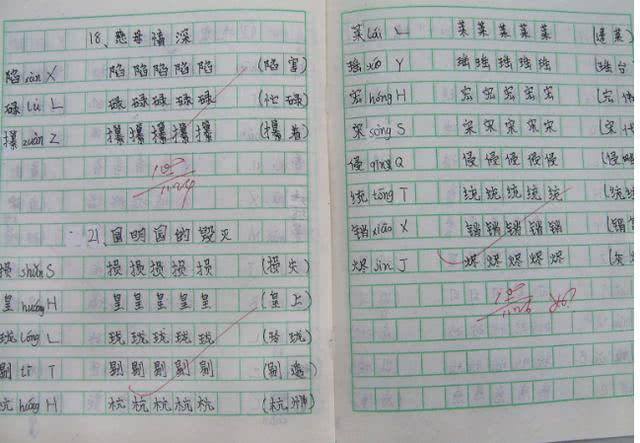 18、慈母情深
陷 xiàn X 陷陷陷陷陷 (陷害)
碌 lù L 碌碌碌碌碌 (忙碌)
攥 zuàn Z 攥攥攥攥攥 (攥着)
100
11.24
21、圆明园的毁灭
损 shǔn S 损损损损损 (损失)
皇 huáng H 皇皇皇皇皇 (皇上)
珑 lóng L 珑珑珑珑珑 (玲珑)
剔 tī T 剔剔剔剔剔 (剔透)
杭 háng H 杭杭杭杭杭 (杭州)
莱 lái L 莱莱莱莱莱 (蓬莱)
瑶 yáo Y 瑶瑶瑶瑶瑶 (瑶台
宏 hóng H 宏宏宏宏宏 (宏
宋 sòng S 宋宋宋宋宋 (宋
侵 qīn Q 侵侵侵侵侵 (侵
统 tǒng T 统统统统统 (统
销 xiāo X 销销销销销 (销
烬 jìn J 烬烬烬烬烬
100